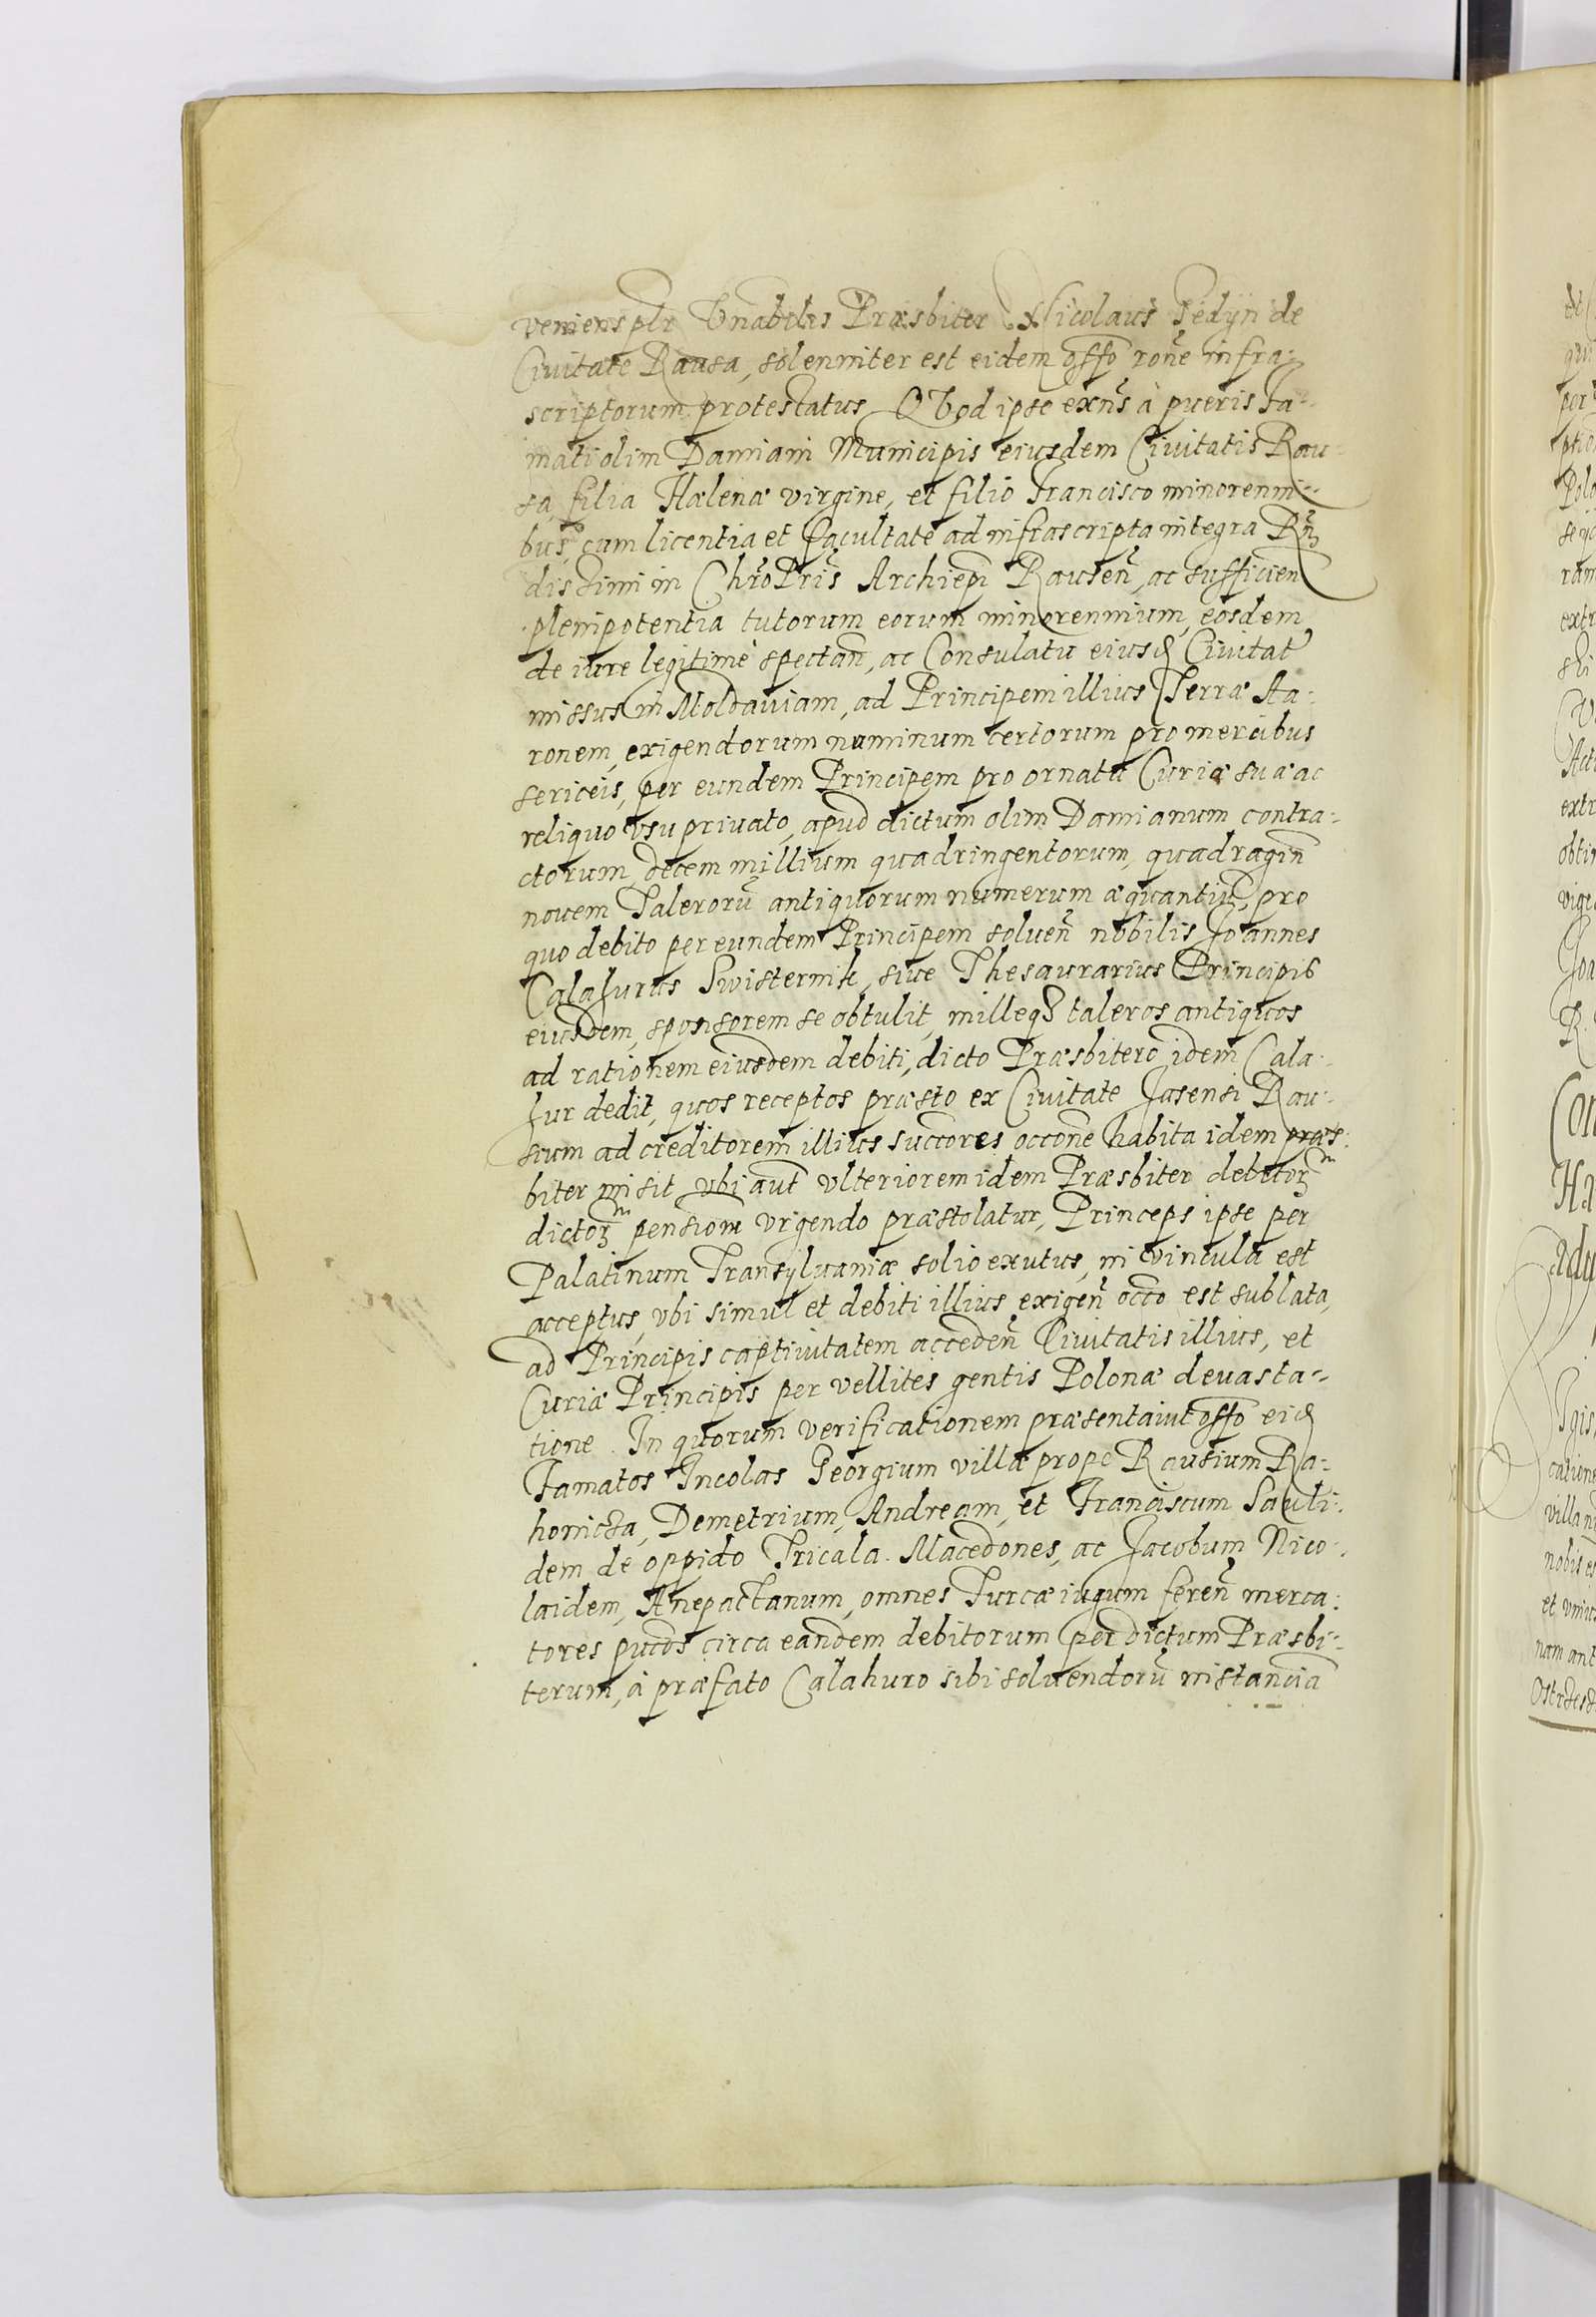 veniens plr Vnabilis Præsbiter Nicolaus Gedÿn de
Ciuitate Rausa, solenniter est eidem offo rōne infra-
scriptorum protestatus QVod ipse exns à pueris Fa-
mati olim Damiani Municipis eiusdem Ciuitatis Rau-
sa, filia Hælenæ virgine, et filio Francisco minorenni-
bus, cum licentia et facultate ad infrascripta integra Rn
dissimi in Chro Pris Archiepi Rausen, ac sufficien
plenipotentia tutorum eorum minorennium, eosdem
de iure legitimè spectan, ac Consulatu eiusd Ciuitat
missus in Moldauiam, ad Principem illius Terræ Aa-
ronem, exigendorum numinum certorum pro mercibus
sericeis, per eundem Principem pro ornatu Curiæ suæ ac
reliquo vsu priuato, apud dictum olim Damianum contra-
ctorum, decem millium quadringentorum, quadragin
nouem Talerorū antiquorum numerum æquantiū, pro
quo debito per eundem Principem soluen nobilis Joannes
Calahurus Swisternik, siue Thesaurarius Principis
eiusdem, sponsorem se obtulit, milleq taleros antiquos
ad rationem eiusdem debiti, dicto Præsbitero idem Cala-
hur dedit, quos receptos præsto ex Ciuitate Jasensi Rau-
sium ad creditorem illius succores occone habita idem præs-
biter misit vbi aut vlteriorem idem Præsbiter debitor
dictor pensionē vrgendo præstolatur, Princeps ipse per
Palatinum Transyluaniæ solio exutus, in vincula est
acceptus, vbi simul et debiti illius exigen occo est sublata,
ad Principis captiuitatem acceden Ciuitatis illius, et
Curiæ Principis per vellites gentis Polonæ deuasta-
tione. In quorum verificationem præsentauit offo eid
Famatos Incolas Georgium villæ prope Rausium Ra-
honicza, Demetrium, Andream, et Franciscum Sauli-
dem de oppido Tricala Macedones, ac Jacobum Nico-
laidem, Anepactanum, omnes Turcæ iugum feren merca-
tores pucos circa eandem debitorum per dictum Præsbi-
terum, à præfato Calahuro sibi soluendorū instancia